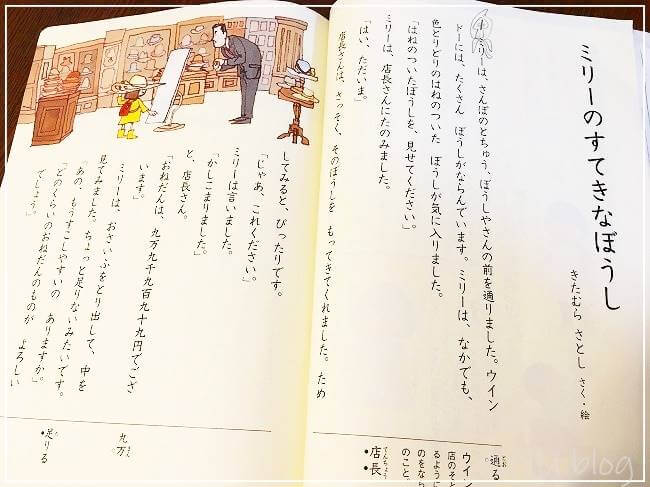 ミリーのすてきなぼうし
きたむら さとし さく・絵
ミリーは、さんぽのとちゅう、ぼうしやさんの前を通りました。ウイン
ドーには、たくさん ぼうしがならんでいます。ミリーは、なかでも、
色とりどりのはねのついた ぼうしが気に入りました。
「はねのついたぼうしを、見せてください。」
ミリーは、店長さんにたのみました。
「はい、ただいま。」
店長さんは、さっそく、そのぼうしを もってきてくれました。ため
してみると、ぴったりです。
「じゃあ、これください。」
ミリーは言いました。
「かしこまりました。」
と、店長さん。
「おねだんは、九万九千九百九十九円でござ
います。」
ミリーは、おさいふをとり出して、中を
見てみました。ちょっと足りないみたいです。
「あの、もうすこしやすいの ありますか。」
「どのくらいのおねだんのものが よろしい
でしょう。」
通る
とお
ウイン
店のそと
るように
をならべ
のこと。
店長
てんちょう
九万
足りる
た
blog